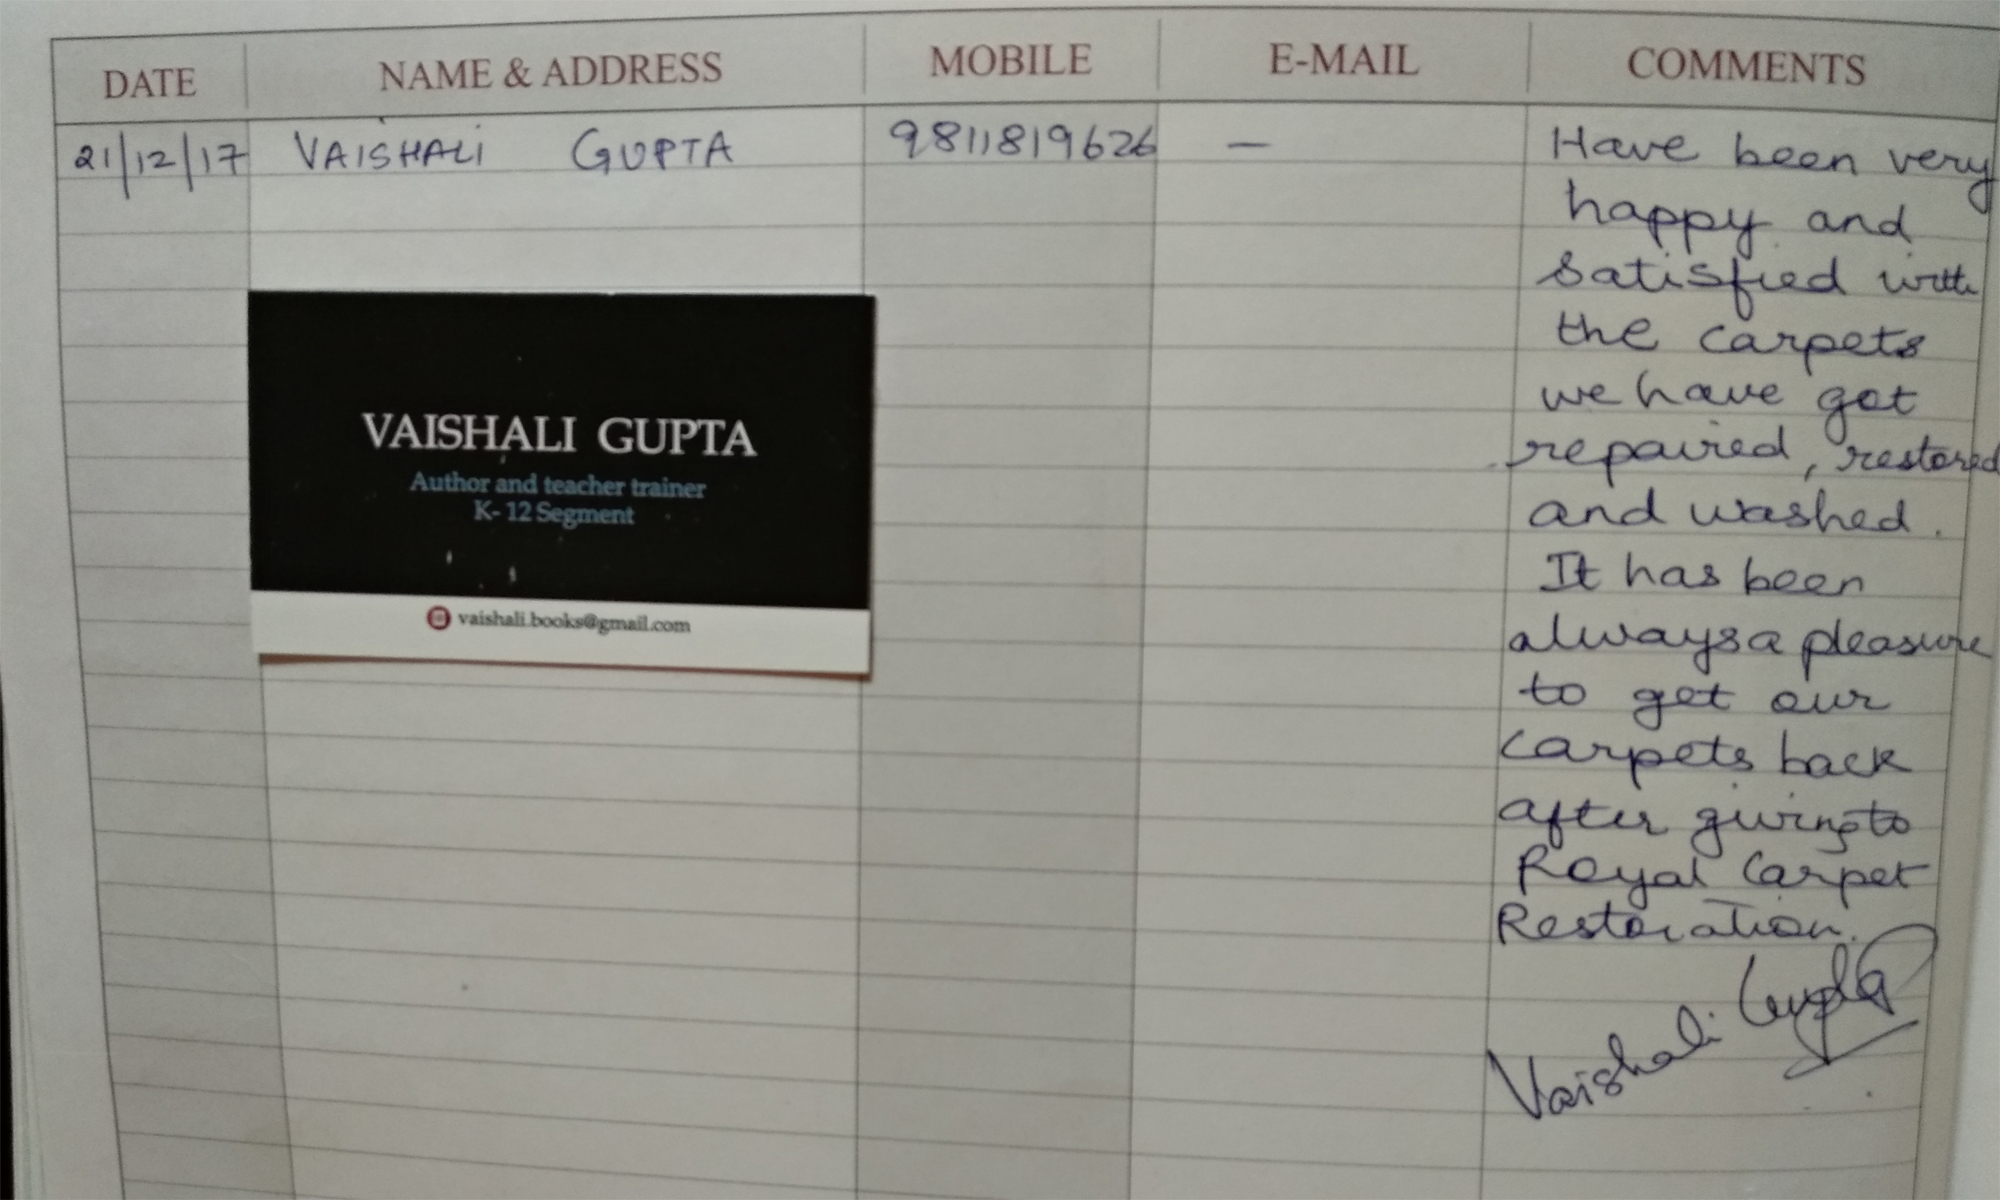 DATE NAME & ADDRESS MOBILE E-MAIL COMMENTS
21/12/17 VAISHALI GUPTA 9811819626 — Have been very
happy and
satisfied with
the carpets
we have got
repaired, restored
and washed.
It has been
always a pleasure
to get our
carpets back
after giving to
Royal Carpet
Restoration.
Vaishali Gupta
VAISHALI GUPTA
Author and teacher trainer
K- 12 Segment
vaishali.books@gmail.com